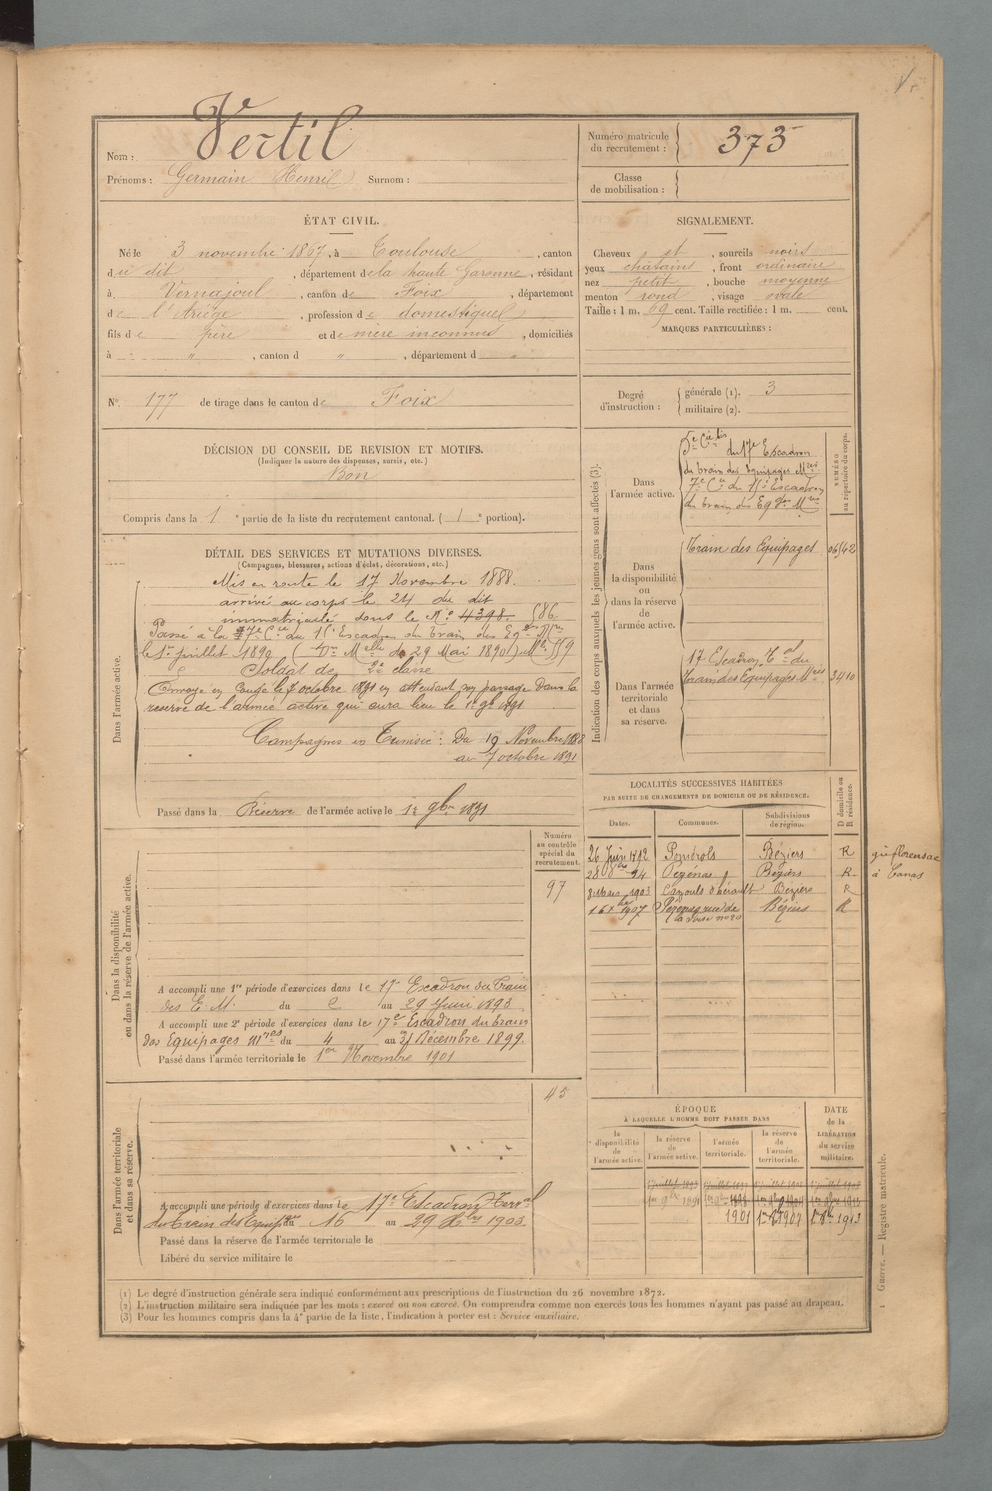 Nom : Vertil
Prénoms : Germain Henri Surnom :
Numéro matricule du recrutement : 373
Classe de mobilisation :
ÉTAT CIVIL.
Né le 3 novembre 1867, à Toulouse, canton
du dit, département de la haute Garonne, résidant
à Vernajoul, canton de Foix, département
de l'Ariège, profession de domestique
fils de père et de mère inconnus, domiciliés
à " , canton d " , département d "
SIGNALEMENT.
Cheveux et , sourcils noirs
yeux chatains , front ordinaire
nez petit , bouche moyenne
menton rond , visage ovale
Taille : 1 m. 69 cent. Taille rectifiée : 1 m. cent.
MARQUES PARTICULIÈRES :
N° 177 de tirage dans le canton de Foix
Degré d'instruction : générale (1). 3
militaire (2).
DÉCISION DU CONSEIL DE REVISION ET MOTIFS.
(Indiquer la nature des dispenses, sursis, etc.)
Bon
Compris dans la 1e partie de la liste du recrutement cantonal. ( 1 portion).
DÉTAIL DES SERVICES ET MUTATIONS DIVERSES.
(Campagnes, blessures, actions d'éclat, décorations, etc.)
Dans l'armée active.
Mis en route le 17 Novembre 1888.
arrivé au corps le 24 du dit
immatriculé sous le No 4398. 586
Passé à la 7e Cie du 15e Escadron du train des Eq. Mres
le 1er Juillet 1890 ( Mlle du 29 Mai 1890) Mle 559
Soldat de 2e classe
Envoyé en congé le 7 octobre 1891 en attendant son passage dans la
réserve de l'armée active qui aura lieu le 1er 9bre 1891
Campagnes en Tunisie : Du 19 Novembre 1888
au 7 octobre 1891
Passé dans la Réserve de l'armée active le 1er 9bre 1891
Indication des corps auxquels les jeunes gens sont affectés (3).
NUMÉRO au répertoire du corps.
Dans l'armée active.
5e Cie bis du 17e Escadron
du train des Equipages Mres
7e Cie du 15e Escadron
du train des Eq. Mres
Dans la disponibilité ou dans la réserve de l'armée active.
Train des Equipages 06542
Dans l'armée territoriale et dans sa réserve.
17 Escadron Tal du
train des Equipages Mres 3410
LOCALITÉS SUCCESSIVES HABITÉES
PAR SUITE DE CHANGEMENTS DE DOMICILE OU DE RÉSIDENCE.
Dates. Communes. Subdivisions de région. D domicile ou R résidence.
26 Juin 1892 Pomérols Béziers R
28 94 Pézénas Béziers R
8 Mars 1903 Cazouls d'hérault Béziers R
16 1907 Pézénas rue de Béziers R
Dans la disponibilité ou dans la réserve de l'armée active.
Numéro au contrôle spécial du recrutement.
97
A accompli une 1re période d'exercices dans le 17e Escadron du Train
des E. M. du 2 au 29 Juin 1893
A accompli une 2e période d'exercices dans le 17e Escadron du train
des Equipages Mres du 4 au 31 Décembre 1899.
Passé dans l'armée territoriale le 1er Novembre 1901
Dans l'armée territoriale et dans sa réserve.
45
A accompli une période d'exercices dans le 17e Escadron Terral
du Train des Equip. du 16 au 29 1903.
Passé dans la réserve de l'armée territoriale le
Libéré du service militaire le
ÉPOQUE
À LAQUELLE L'HOMME DOIT PASSER DANS
la disponibilité de l'armée active. la réserve de l'armée active. l'armée territoriale. la réserve de l'armée territoriale.
DATE de la LIBÉRATION du service militaire.
1901 1907 1913
(1) Le degré d'instruction générale sera indiqué conformément aux prescriptions de l'instruction du 26 novembre 1872.
(2) L'instruction militaire sera indiquée par les mots : exercé ou non exercé. On comprendra comme non exercés tous les hommes n'ayant pas passé au drapeau.
(3) Pour les hommes compris dans la 4e partie de la liste, l'indication à porter est : Service auxiliaire.
1 Guerre. — Registre matricule.